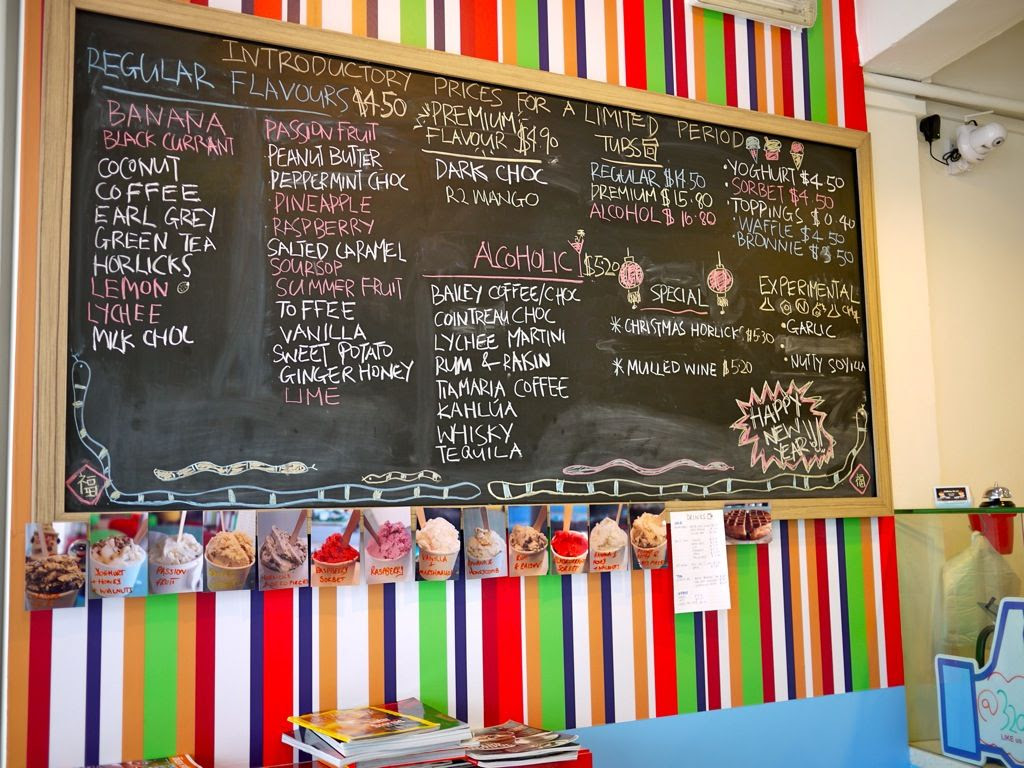 INTRODUCTORY PRICES FOR A LIMITED PERIOD
REGULAR FLAVOURS $4.50
BANANA
BLACK CURRANT
COCONUT
COFFEE
EARL GREY
GREEN TEA
HORLICKS
LEMON
LYCHEE
MILK CHOC
PASSION FRUIT
PEANUT BUTTER
PEPPERMINT CHOC
PINEAPPLE
RASPBERRY
SALTED CARAMEL
SOURSOP
SUMMER FRUIT
TOFFEE
VANILLA
SWEET POTATO
GINGER HONEY
LIME
PREMIUM
FLAVOUR $4.90
DARK CHOC
R2 MANGO
ALCOHOLIC $5.20
BAILEY COFFEE/CHOC
COINTREAU CHOC
LYCHEE MARTINI
RUM & RAISIN
TIAMARIA COFFEE
KAHLUA
WHISKY
TEQUILA
TUBS
REGULAR $14.50
PREMIUM $15.80
ALCOHOL $16.80
SPECIAL
*CHRISTMAS HORLICK $5.30
*MULLED WINE $5.20
• YOGHURT $4.50
• SORBET $4.50
• TOPPINGS $0.40
• WAFFLE $4.50
• BROWNIE
EXPERIMENTAL
• GARLIC
• NUTTY SOYILLA
HAPPY
NEW
YEAR!!!
福
福
YOGHURT
+ HONEY
+ WALNUTS
PASSION
FRUIT
RASPBERRY
SORBET
RASPBERRY
VANILLA
DRINKS
LIKE us